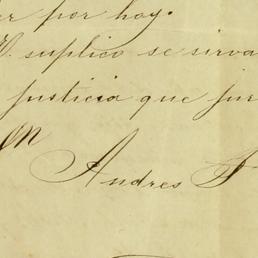 por hoy.
suplico se sirva
justicia que jur
Andres F